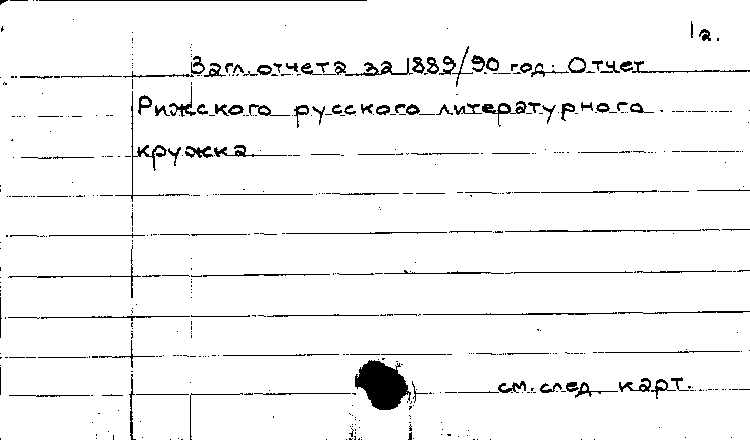 1а.
Загл. отчета за 1889/90 год: Отчет
Рижского русского литературного
кружка.
см. след. карт.